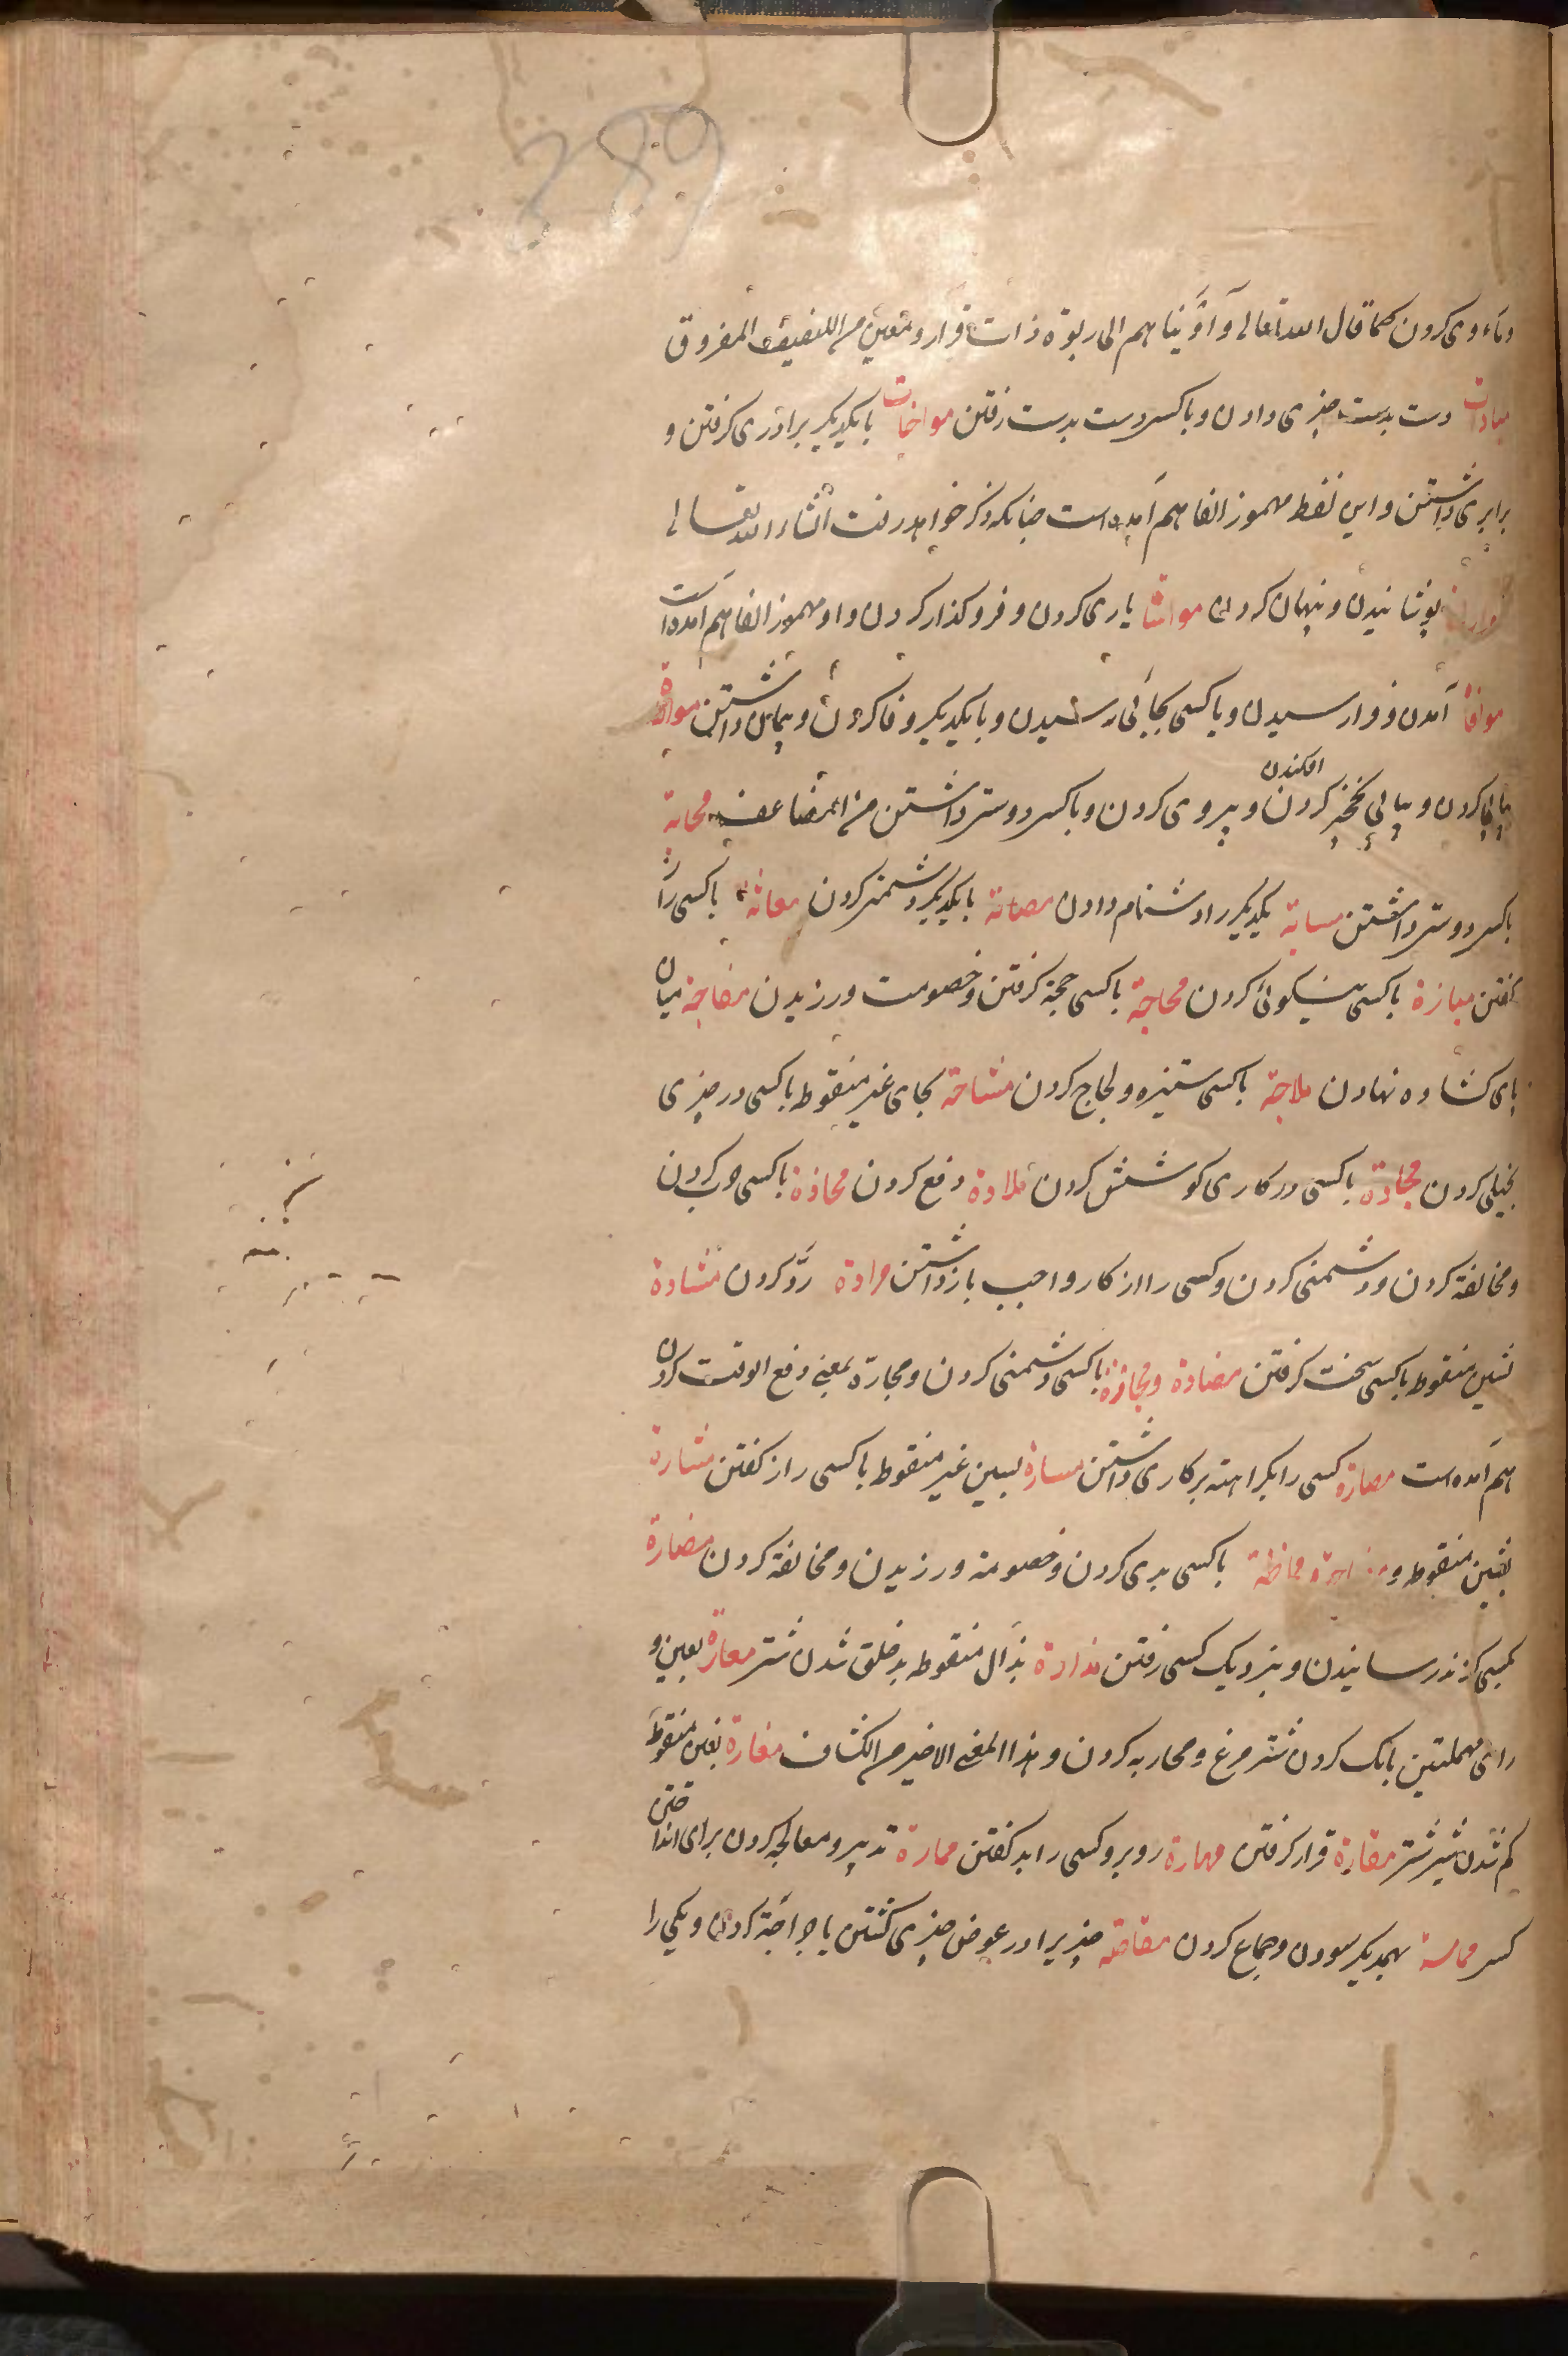 389
وماوی کردن کما قال الله تعالی وآوَیناهم الی ربوة ذات قرار ومعین من اللفیف المفروق
میادات دست بدست چیزی دادن وباکسی دست بدست رفتن مواخات بایکدیگر برادری گرفتن و
برابری داشتن واین لفظ مهموز الفا هم آمده است چنانکه ذکر خواهد رفت انشاء الله تعالی
پوشانیدن وپنهان کردن مواسا یاری کردن وفروگذار کردن واو مهموز الفا هم آمده است
موافا آمدن وفرارسیدن وباکسی بجائی رسیدن وبایکدیگر وفا کردن وپیمان داشتن موالاة
پیاپی کردن وپیاپی نخجیر کردن افکندن وپیروی کردن وباکسی دوستی داشتن من المضاعف محابة
باکسی دوستی داشتن مسابة یکدیگر را دشنام دادن بایکدیگر دشمنی کردن باکسی راز
گفتن مبارة باکسی نیکوئی کردن محاجة باکسی حجة گرفتن وخصومت ورزیدن مفاجة میان
پای کشاده نهادن ملاجة باکسی ستیزه ولجاج کردن مشاحة بحای غیر منقوط باکسی در چیزی
بخیلی کردن مجادة باکسی در کاری کوشش کردن ملادة دفع کردن محادة باکسی حرب کردن
ومخالفة کردن ودشمنی کردن وکسی را از کار واجب بازداشتن مرادة ردّ کردن مشادة
بشین منقوط باکسی سخت گرفتن مضادة ومحارة باکسی دشمنی کردن ومجارّة بمعنی دفع الوقت کردن
هم آمده است مصارة کسی را بکراهته بر کاری داشتن مسارة بسین غیر منقوط باکسی راز گفتن مشارة
بشین منقوط و مماظة باکسی بدی کردن وخصومة ورزیدن ومخالفة کردن مضارة
بکسی گزند رسانیدن وبنزدیک کسی رفتن مذارة بذال منقوط بدخلق شدن شتر معارة بعین و
رای مهملتین بانگ کردن شتر مرغ ومحاربه کردن وهذا المعنی الاخیر من الکشاف مغارة بغین منقوط
کم شدن شیر شتر مقارة قرار گرفتن مهارة روبرو کسی را بد گفتن ممارة تدبیر ومعالجه کردن برای انداختن
کسی مماسة بهمدیگر سودن وجماع کردن مقاصة چیزیرا در عوض چیزی کشتن یا جراحة کردن ویکی را